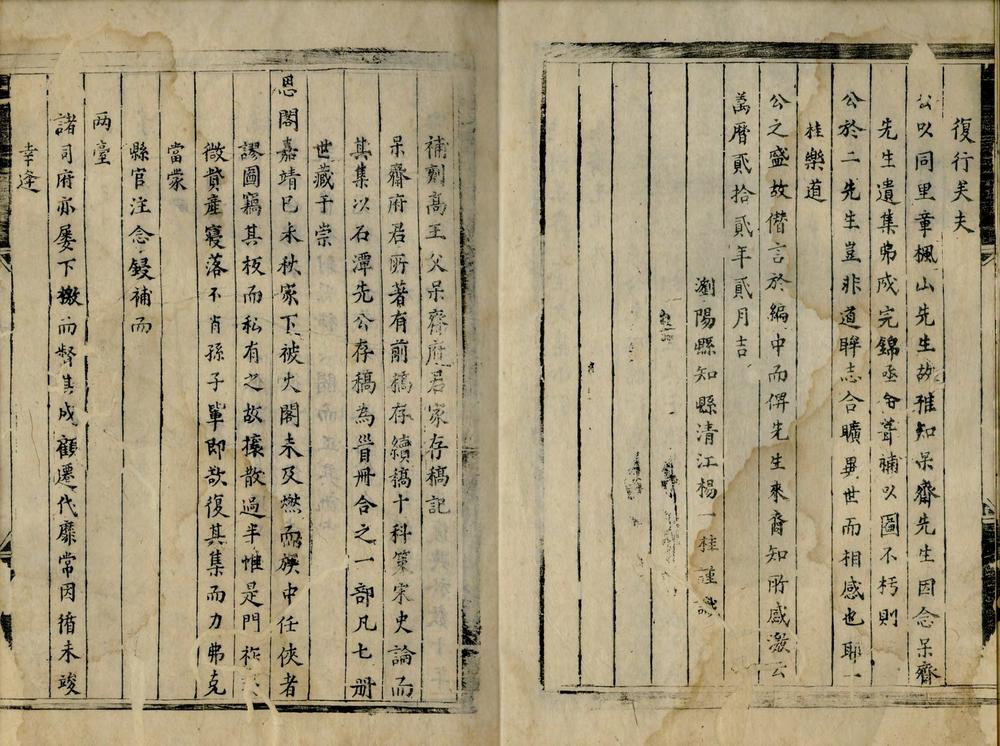 復行矣夫
公以同里章楓山先生故雅知呆齋先生因念呆齋
先生遺集弗成完錦亟令葺補以圖不朽則
公於二先生豈非道眸志合曠畢世而相感也耶一
桂樂道
公之盛故僭言於編中而俾先生來裔知所感激云
萬曆貳拾貳年貳月吉
瀏陽縣知縣清江楊一桂謹識
補刻高王父呆齋府君家存稿記
呆齋府君所著有前稿存續稿十科策宋史論而
其集以石潭先公存稿為首冊合之一部凡七冊
世藏于崇
恩閣嘉靖巳未秋家下被火閣未及燃而族中任俠者
謬圖竊其板而私有之故攘散過半惟是門祚
微貲產寢落不肖孫子單即欲復其集而力弗克
當蒙
縣官注念鋟補而
兩臺
諸司府亦屢下檄而督其成顧遷代靡常因循未竣
幸逢